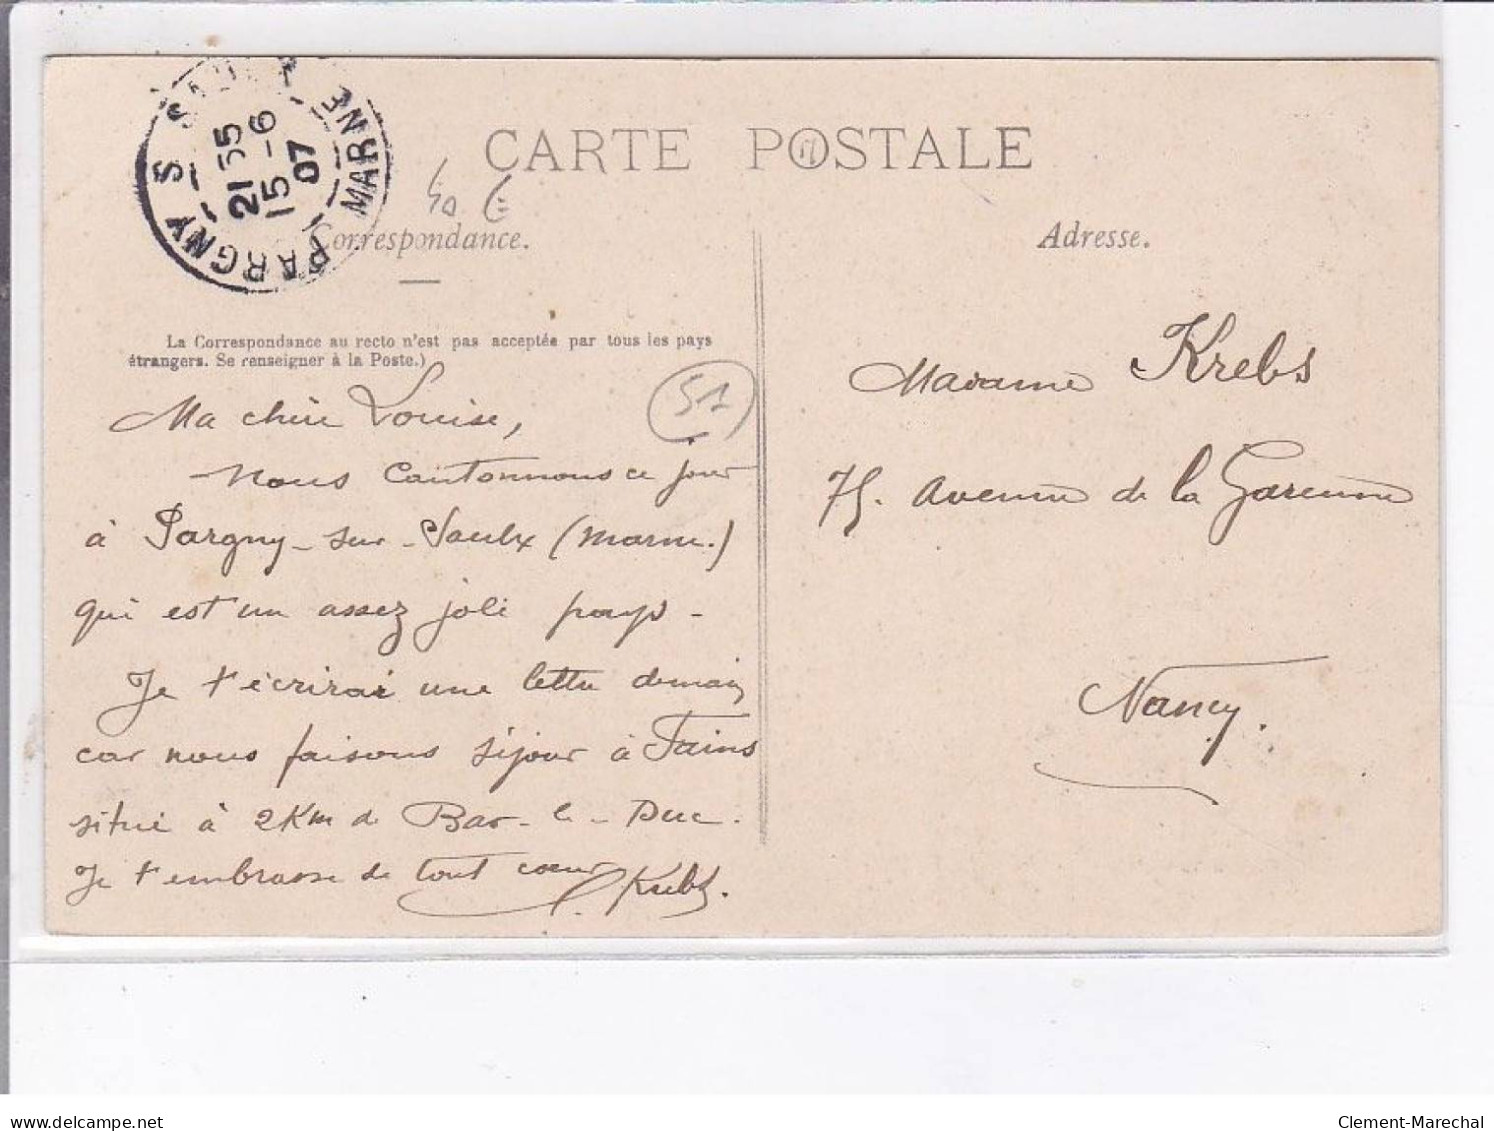 PARGNY S SAULX MARNE
2155
15-6
07
CARTE POSTALE
40 €
Correspondance.
Adresse.
La Correspondance au recto n'est pas acceptée par tous les pays
étrangers. Se renseigner à la Poste.)
51
Ma chère Louise,
Nous Cantonnons ce jour
à Pargny-sur-Saulx (Marne.)
qui est un assez joli pays -
Je t'écrirai une lettre demain
car nous faisons séjour à Fains
situé à 2 Km de Bar-le-Duc.
Je t'embrasse de tout cœur
Krebs.
Madame Krebs
75. Avenue de la Garenne
Nancy.
delcampe.net
Clement-Marechal